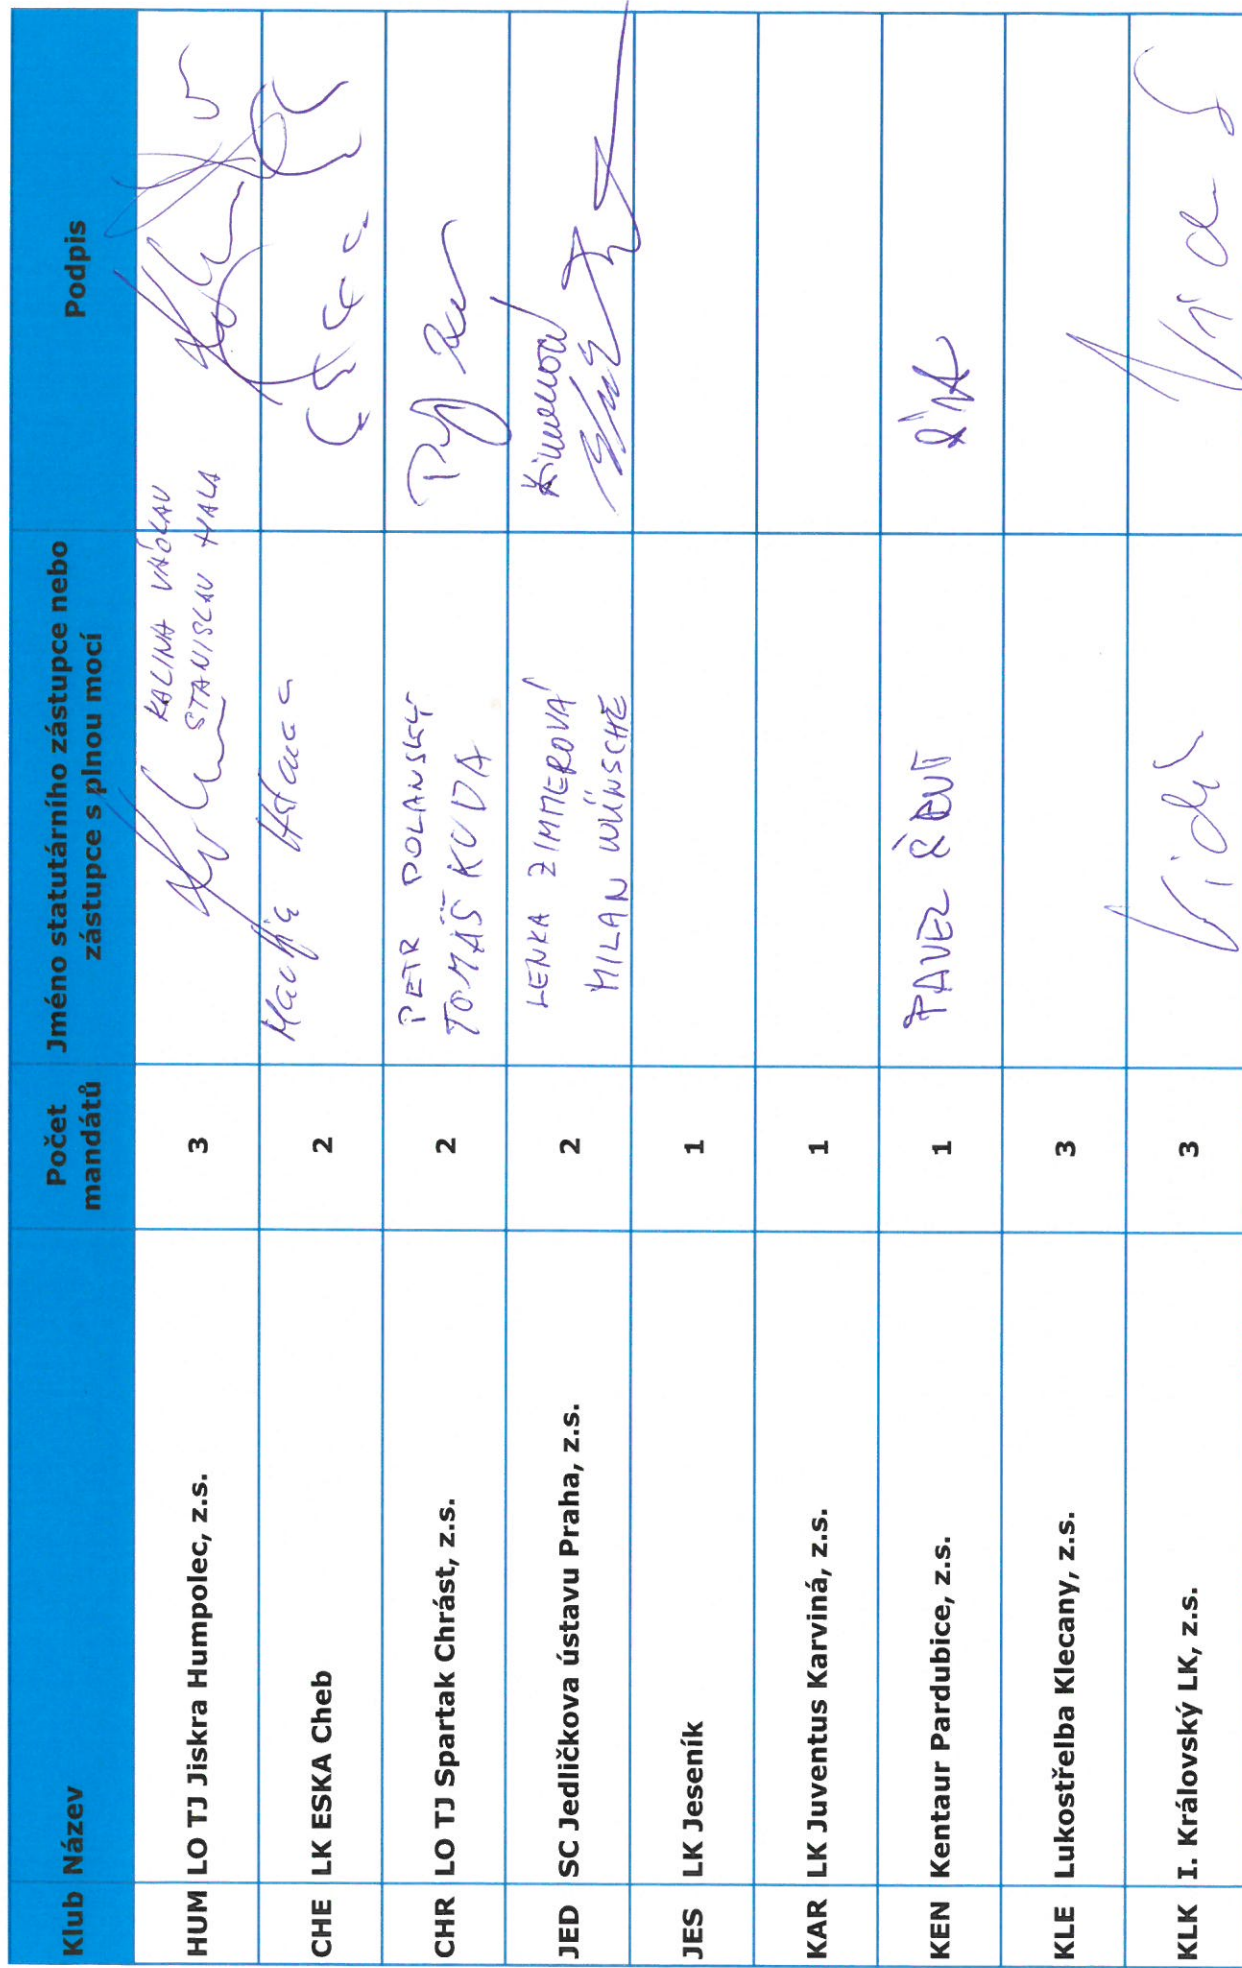 Klub Název Počet mandátů Jméno statutárního zástupce nebo zástupce s plnou mocí Podpis
HUM LO TJ Jiskra Humpolec, z.s. 3 KALINA VÁCLAV
STANISLAV HALA
CHE LK ESKA Cheb 2
CHR LO TJ Spartak Chrást, z.s. 2 PETR DOLANSKÝ
TOMÁŠ KUDA
JED SC Jedličkova ústavu Praha, z.s. 2 LENKA ZIMMEROVÁ
MILAN WÜNSCHE
JES LK Jeseník 1
KAR LK Juventus Karviná, z.s. 1
KEN Kentaur Pardubice, z.s. 1 PAVEL
KLE Lukostřelba Klecany, z.s. 3
KLK I. Královský LK, z.s. 3